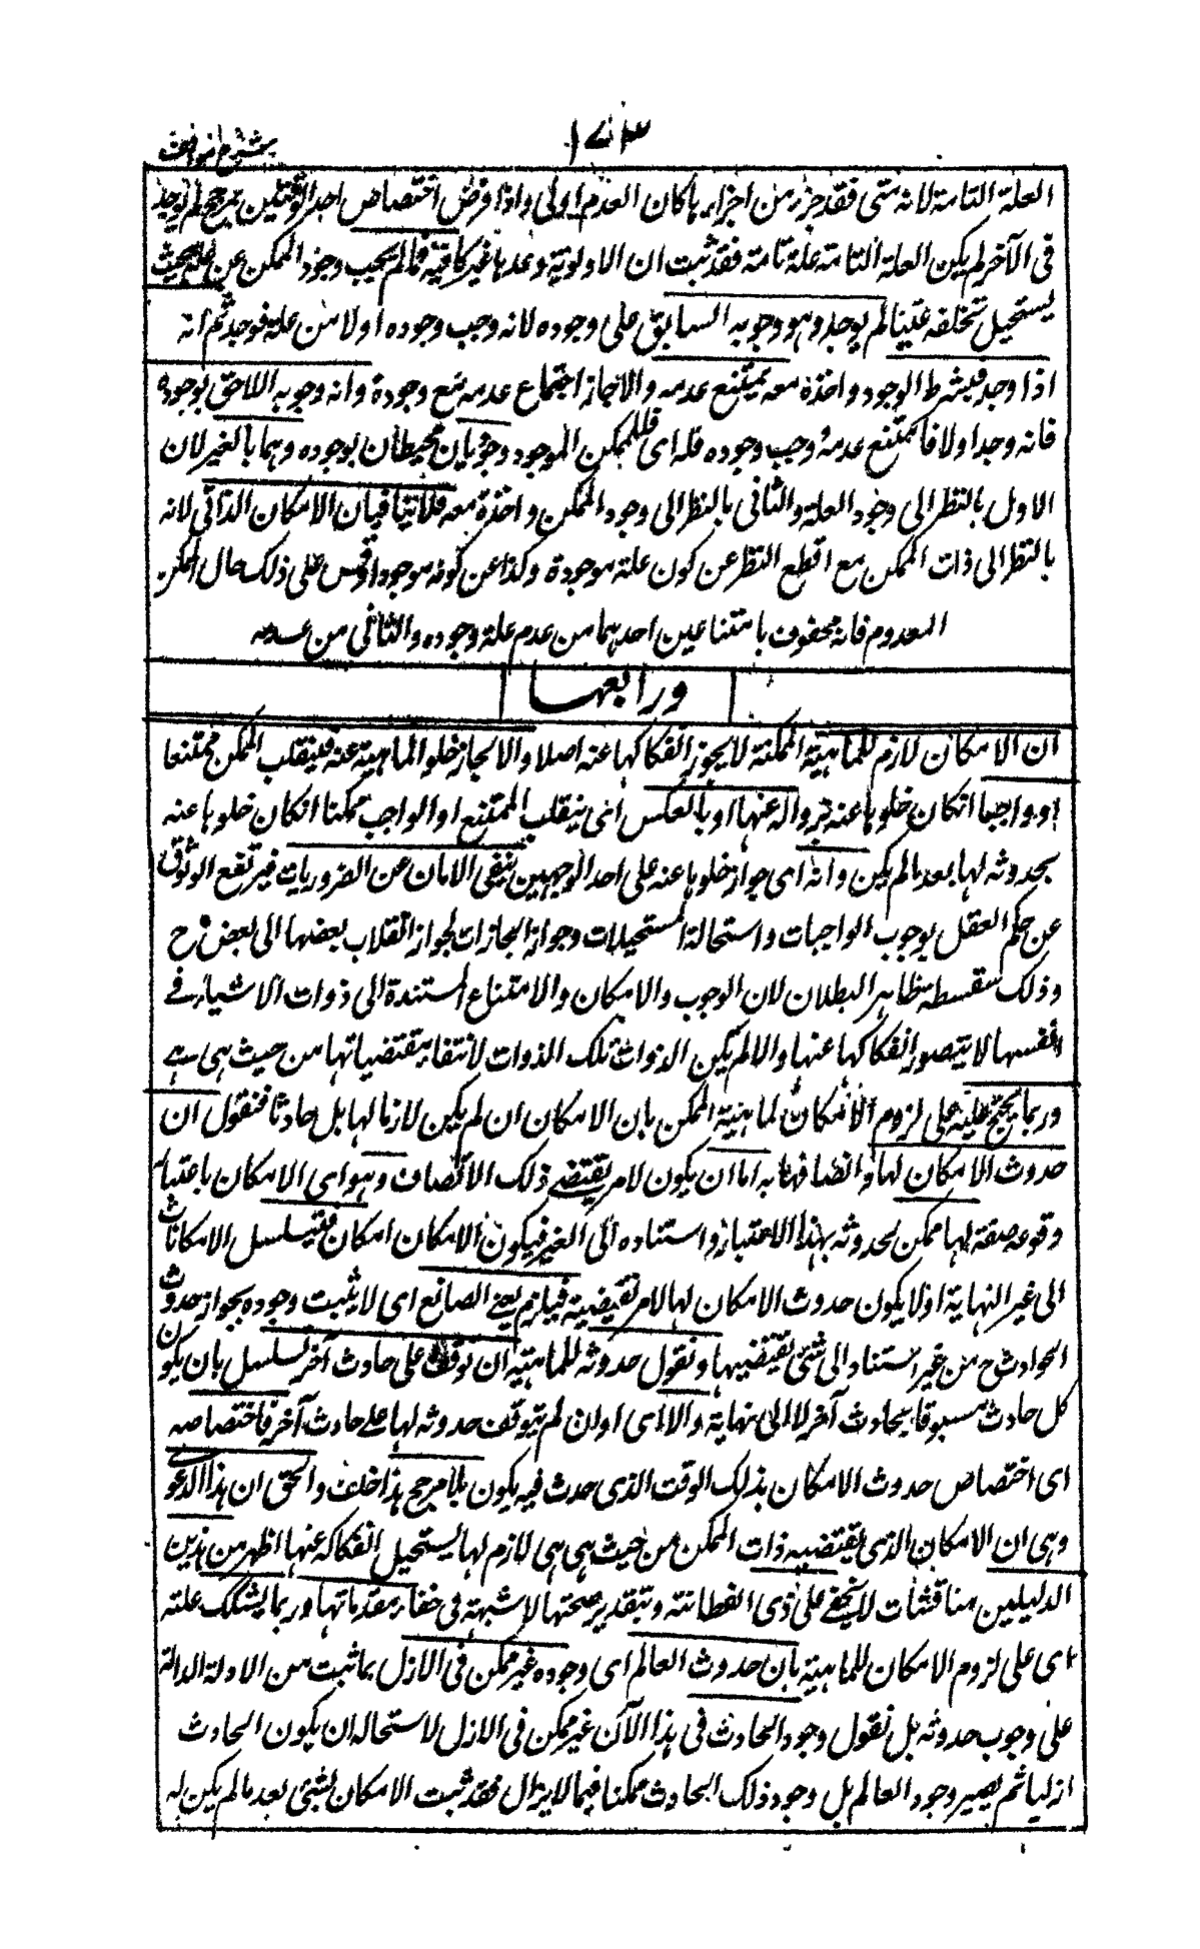 ١٧٣
شرح مواقف
العلة التامة لانه متى فقد جزء من اجزائها كان العدم اولى واذا فرض اختصاص احد الوقتين بمرجح لم يوجد
فى الآخر لم يكن العلة التامة علة تامة فقد ثبت ان الاولوية وحدها غير كافية فمالم يجب وجود الممكن عن علته بحيث
يستحيل تخلفه عنها لم يوجد وهو وجوبه السابق على وجوده لانه وجب وجوده اولا من علته فوجد ثم انه
اذا وجد فبشرط الوجود واخذه معه يمتنع عدمه والا جاز اجتماع عدمه مع وجوده وانه وجوبه اللاحق لوجوده
فانه وجد اولا فامتنع عدمه ووجب وجوده فله اى فللممكن الموجود وجوبان محيطان بوجوده وهما بالغير لان
الاول بالنظر الى وجود العلة والثانى بالنظر الى وجود الممكن واخذه معه فلا ينافيان الامكان الذاتى لانه
بالنظر الى ذات الممكن مع قطع النظر عن كون علته موجودة وكذا عن كونه موجودا وقس على ذلك حال الممكن
المعدوم فانه محفوف بامتناعين احدهما من عدم علة وجوده والثانى من عدمه
ورابعها
ان الامكان لازم للماهية الممكنة لا يجوز انفكاكها عنه اصلا والا لجاز خلو الماهية عنه فينقلب الممكن ممتنعا
او واجبا انكان خلوها عنه بزواله عنها او بالعكس اى ينقلب الممتنع او الواجب ممكنا انكان خلوها عنه
بحدوثه لها بعد مالم يكن وانه اى جواز خلوها عنه على احد الوجهين ينفى الامان عن الضروريات فيرتفع الوثوق
عن حكم العقل بوجوب الواجبات واستحالة المستحيلات وجواز الجائزات لجواز انقلاب بعضها الى بعض ح
وذلك سفسطة ظاهر البطلان لان الوجوب والامكان والامتناع المستندة الى ذوات الاشياء فى
انفسها لا يتصور انفكاكها عنها والا لم تكن الذوات تلك الذوات لانتفاء مقتضياتها من حيث هى هى
وربما يحتج عليه على لزوم الامكان لماهية الممكن بان الامكان ان لم يكن لازما لها بل حادثا فنقول ان
حدوث الامكان لها واتصافها به اما ان يكون لامر يقتضى ذلك الاتصاف وهو اى الامكان باعتبار
وقوعه صفة لها ممكن لحدوثه بهذا الاعتبار واستناده الى الغير فيكون للامكان امكان فيتسلسل الامكانات
الى غير النهاية اولا يكون حدوث الامكان لها لامر يقتضيه فيلزم نفى الصانع اى لا يثبت وجوده بجواز حدوث
الحوادث ح من غير استناد الى شئ يقتضيها ونقول حدوثه للماهية ان توقف على حادث آخر تسلسل بان يكون
كل حادث مسبوقا بحادث آخر لا الى نهاية والا اى وان لم يتوقف حدوثه لها على حادث آخر فاختصاصه
اى اختصاص حدوث الامكان بذلك الوقت الذى حدث فيه يكون بلا مرجح هذا خلف والحق ان هذا الدعوى
وهى ان الامكان الذى يقتضيه ذات الممكن من حيث هى هى لازم لها يستحيل انفكاكه عنها اظهر من هذين
الدليلين مناقشات لا يخفى على ذى الفطانة وبتقدير صحتها لا شبهة فى خفاء مقدماتها وربما يشكك عليه
اى على لزوم الامكان للماهية بان حدوث العالم اى وجوده غير ممكن فى الازل بما ثبت من الادلة الدالة
على وجوب حدوثه بل نقول وجود الحادث فى هذا الآن غير ممكن فى الازل لاستحالة ان يكون الحادث
ازليا ثم يصير وجود العالم بل وجود ذلك الحادث ممكنا فيما لا يزال فقد ثبت الامكان لشئ بعد مالم يكن له